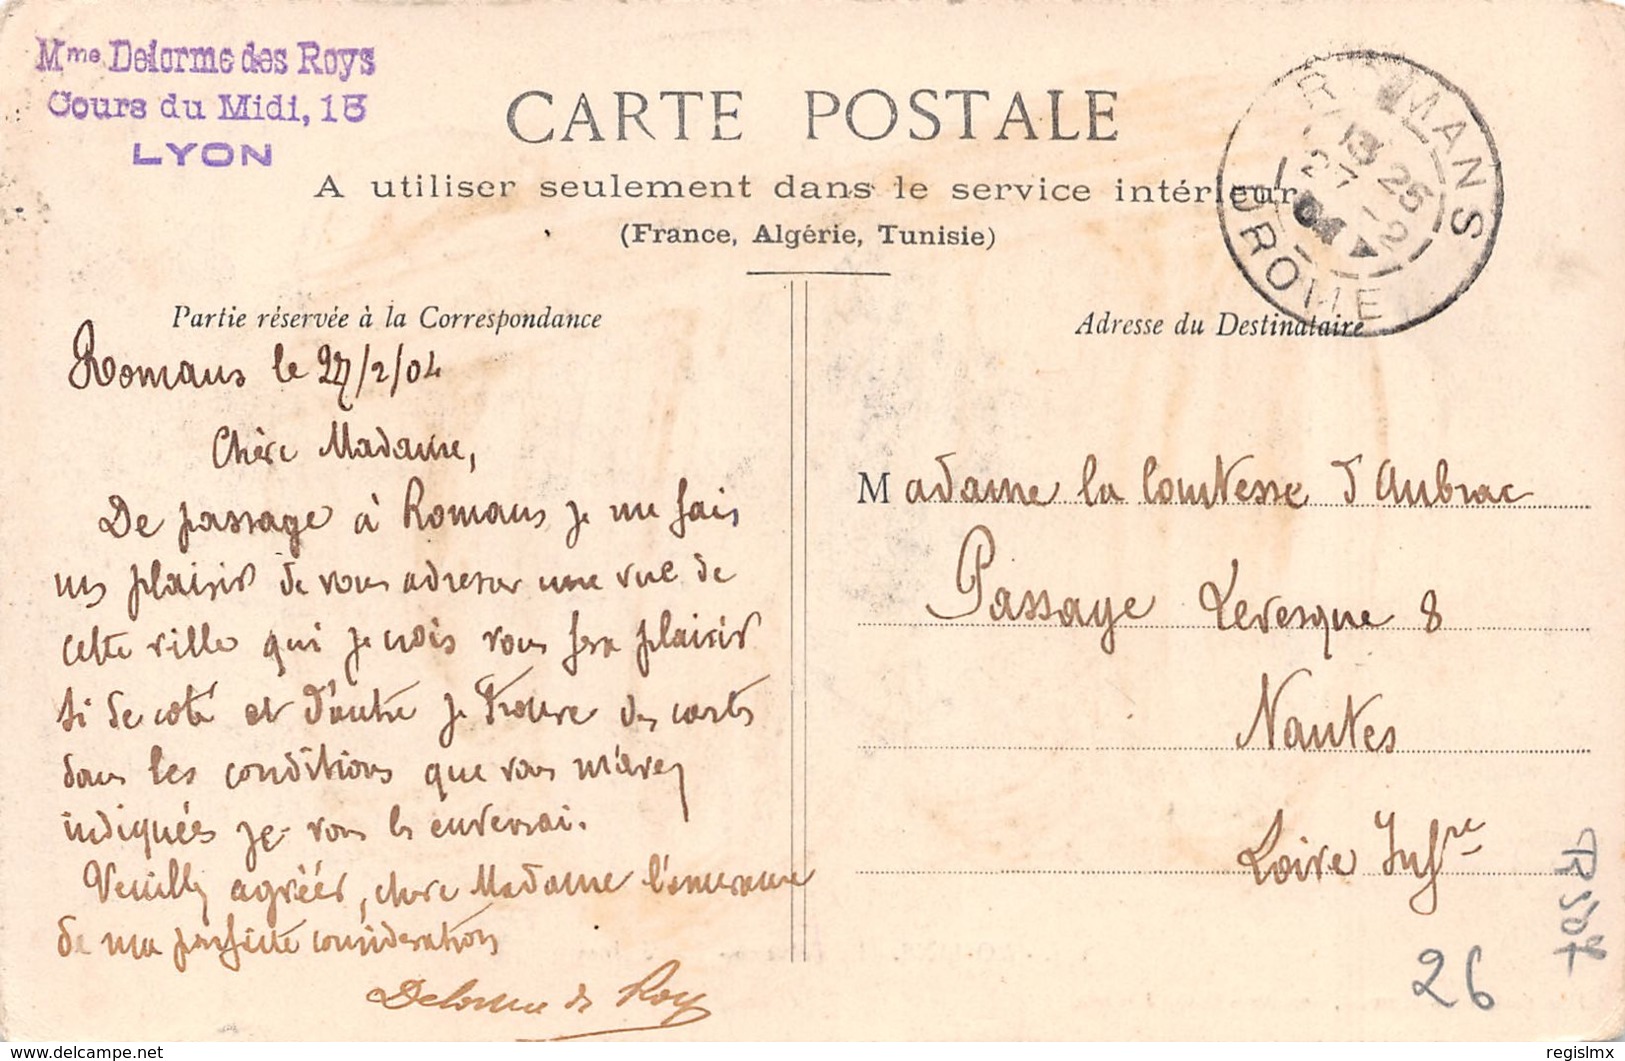 Mme Delorme des Roys
Cours du Midi, 15
LYON
CARTE POSTALE
A utiliser seulement dans le service intérieur
(France, Algérie, Tunisie)
ROMANS
DROME
25
04
Partie réservée à la Correspondance
Adresse du Destinataire
Romans le 27/2/04
Chère Madame,
De passage à Romans je me fais
un plaisir de vous adresser une vue de
cette ville qui je crois vous fera plaisir
Si de coté et d'autre je trouve des cartes
dans les conditions que vous m'avez
indiquées je vous les enverrai.
Veuillez agréer, chère Madame l'assurance
de ma parfaite considération
Delorme des Roys
Madame la Comtesse d'Aubrac
Passage Levesque 8
Nantes
Loire Infre
26
delcampe.net
regislmx